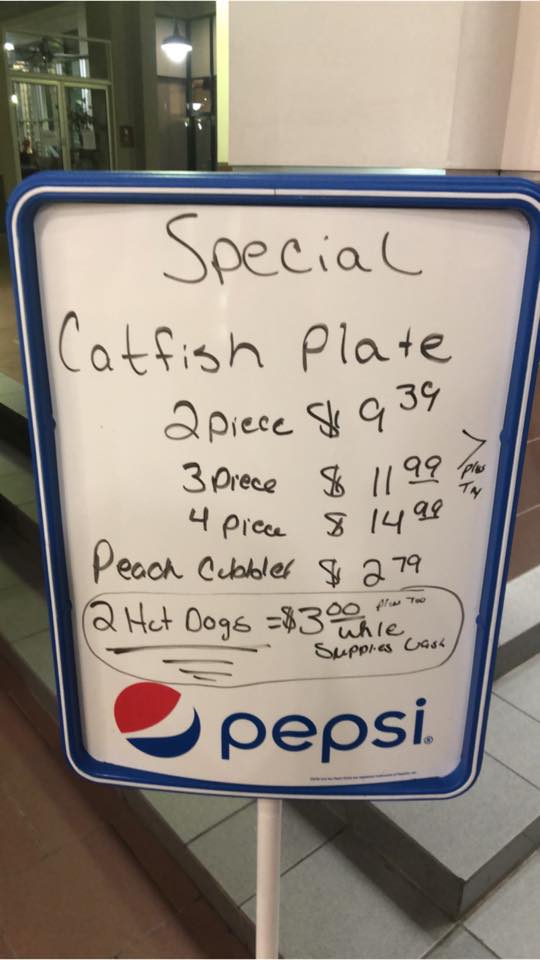 Special
Catfish Plate
2 piece $ 9 39
3 piece $ 11 99 > plus
4 piece $ 14 99
Peach Cobbler $ 2 79
2 Hot Dogs = $3 00 plus Tax
while
Supplies Last
pepsi